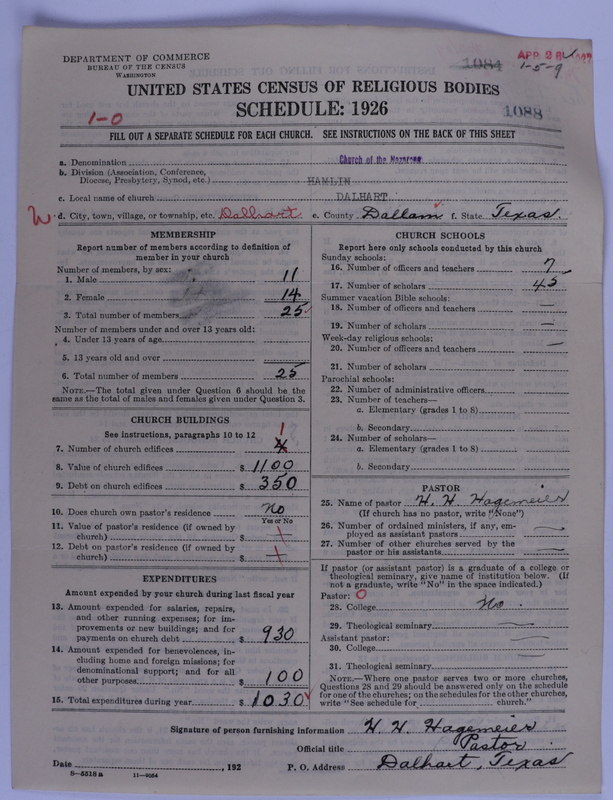 DEPARTMENT OF COMMERCE
BUREAU OF THE CENSUS
WASHINGTON
1084
APR 26
1-5-9
UNITED STATES CENSUS OF RELIGIOUS BODIES
SCHEDULE: 1926
1-0
1088
FILL OUT A SEPARATE SCHEDULE FOR EACH CHURCH. SEE INSTRUCTIONS ON THE BACK OF THIS SHEET
a. Denomination Church of the Nazarene
b. Division (Association, Conference,
Diocese, Presbytery, Synod, etc.) HAMLIN
c. Local name of church DALHART
W d. City, town, village, or township, etc. Dalhart e. County Dallam f. State Texas.
MEMBERSHIP
Report number of members according to definition of
member in your church
Number of members, by sex:
1. Male 11
2. Female 14
3. Total number of members 25
Number of members under and over 13 years old:
4. Under 13 years of age
5. 13 years old and over
6. Total number of members 25
NOTE.—The total given under Question 6 should be the
same as the total of males and females given under Question 3.
CHURCH BUILDINGS
See instructions, paragraphs 10 to 12 1
7. Number of church edifices 4
8. Value of church edifices $ 1100
9. Debt on church edifices $ 350
10. Does church own pastor's residence No
Yes or No
11. Value of pastor's residence (if owned by
church) $
12. Debt on pastor's residence (if owned by
church) $
EXPENDITURES
Amount expended by your church during last fiscal year
13. Amount expended for salaries, repairs,
and other running expenses; for im-
provements or new buildings; and for
payments on church debt $ 930
14. Amount expended for benevolences, in-
cluding home and foreign missions; for
denominational support; and for all
other purposes $ 100
15. Total expenditures during year $ 1030
CHURCH SCHOOLS
Report here only schools conducted by this church
Sunday schools:
16. Number of officers and teachers 7
17. Number of scholars 45
Summer vacation Bible schools:
18. Number of officers and teachers
19. Number of scholars —
Week-day religious schools:
20. Number of officers and teachers —
21. Number of scholars
Parochial schools:
22. Number of administrative officers
23. Number of teachers—
a. Elementary (grades 1 to 8)
b. Secondary
24. Number of scholars—
a. Elementary (grades 1 to 8)
b. Secondary
PASTOR
25. Name of pastor H. H. Hagemeier
(If church has no pastor, write "None")
26. Number of ordained ministers, if any, em-
ployed as assistant pastors —
27. Number of other churches served by the
pastor or his assistants —
If pastor (or assistant pastor) is a graduate of a college or
theological seminary, give name of institution below. (If
not a graduate, write "No" in the space indicated.)
Pastor: O
28. College No
29. Theological seminary —
Assistant pastor:
30. College —
31. Theological seminary
NOTE.—Where one pastor serves two or more churches,
Questions 28 and 29 should be answered only on the schedule
for one of the churches; on the schedules for the other churches,
write "See schedule for church."
Signature of person furnishing information H. H. Hagemeier
Official title Pastor
Date , 192 P. O. Address Dalhart, Texas
8-5518 a 11-9084